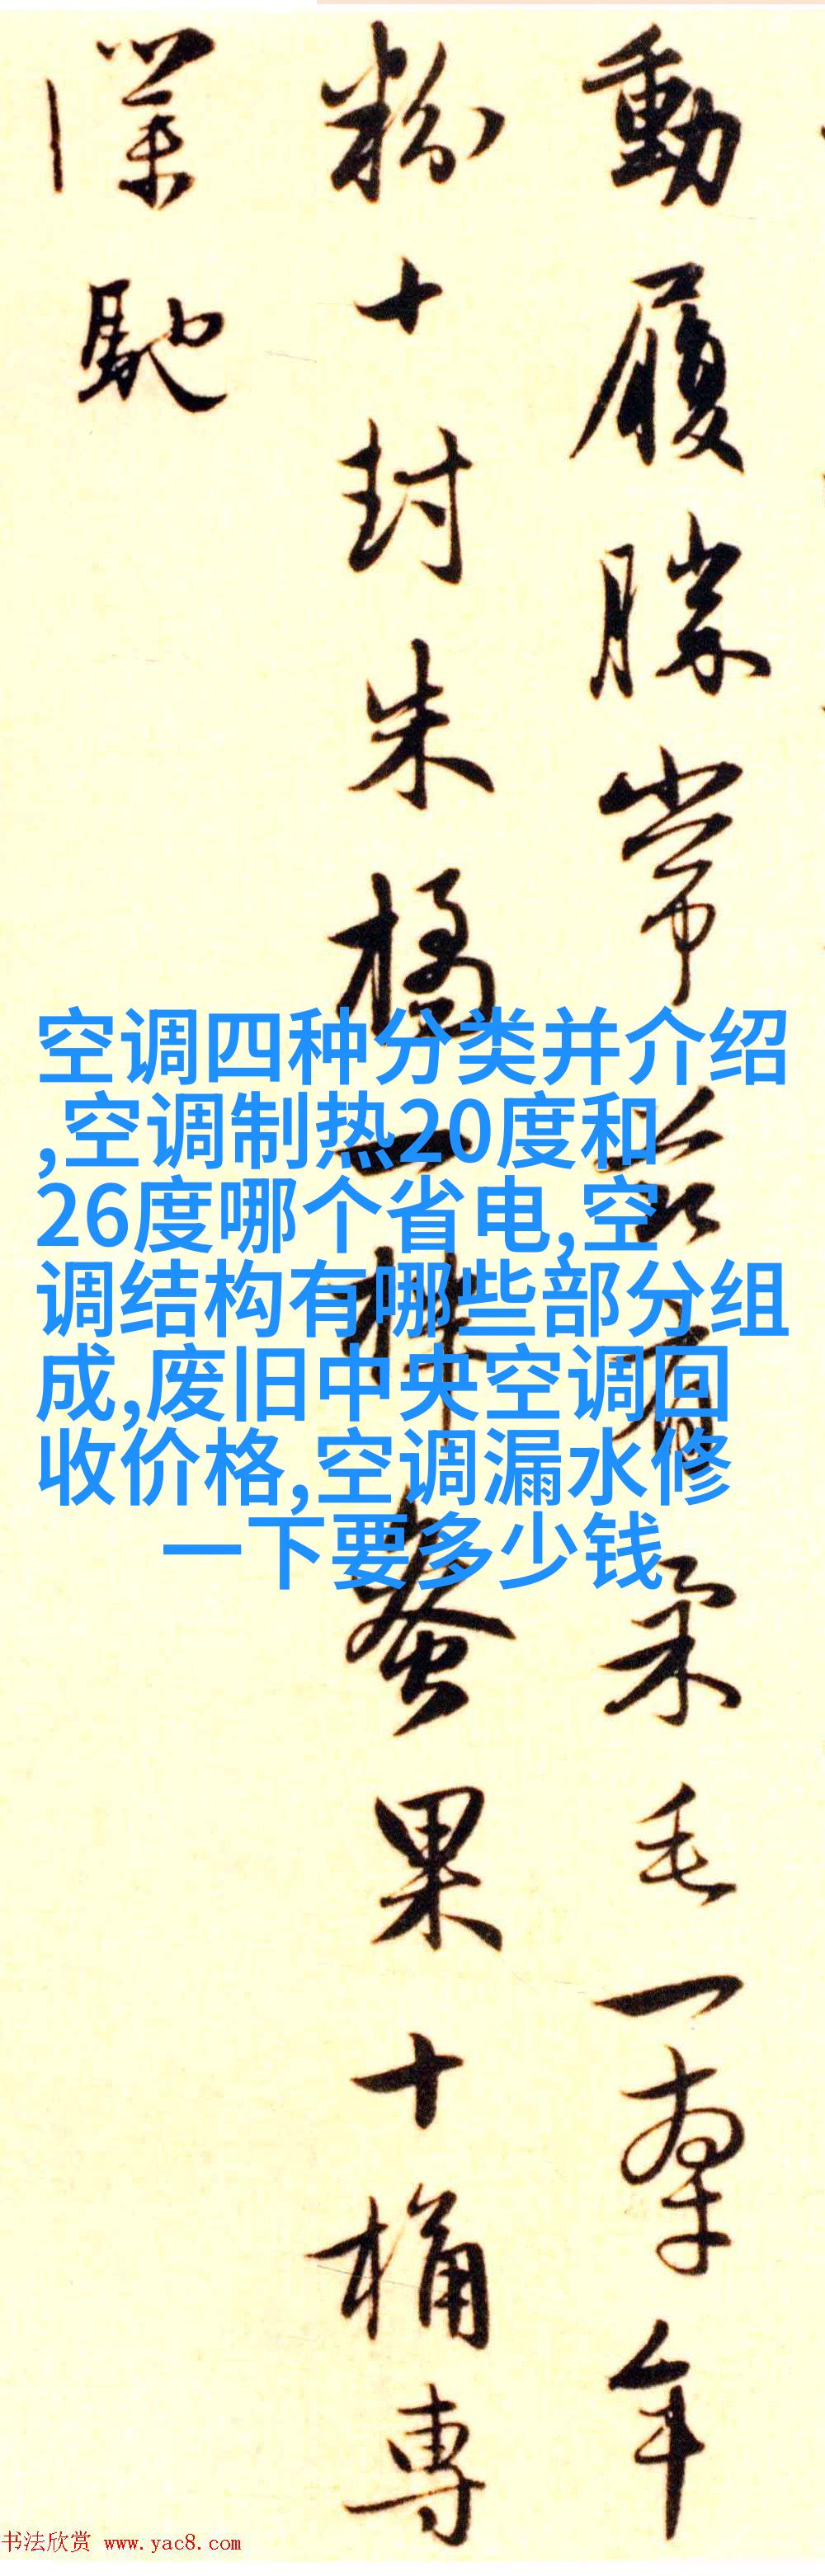 動履勝常前有柔毛一牽年
粉十封朱橘一
蚕果十桶專
僕馳
空调四种分类并介绍
,空调制热20度和
26度哪个省电,空
调结构有哪些部分组
成,废旧中央空调回
收价格,空调漏水修
一下要多少钱
书法欣赏 www.yac8.com